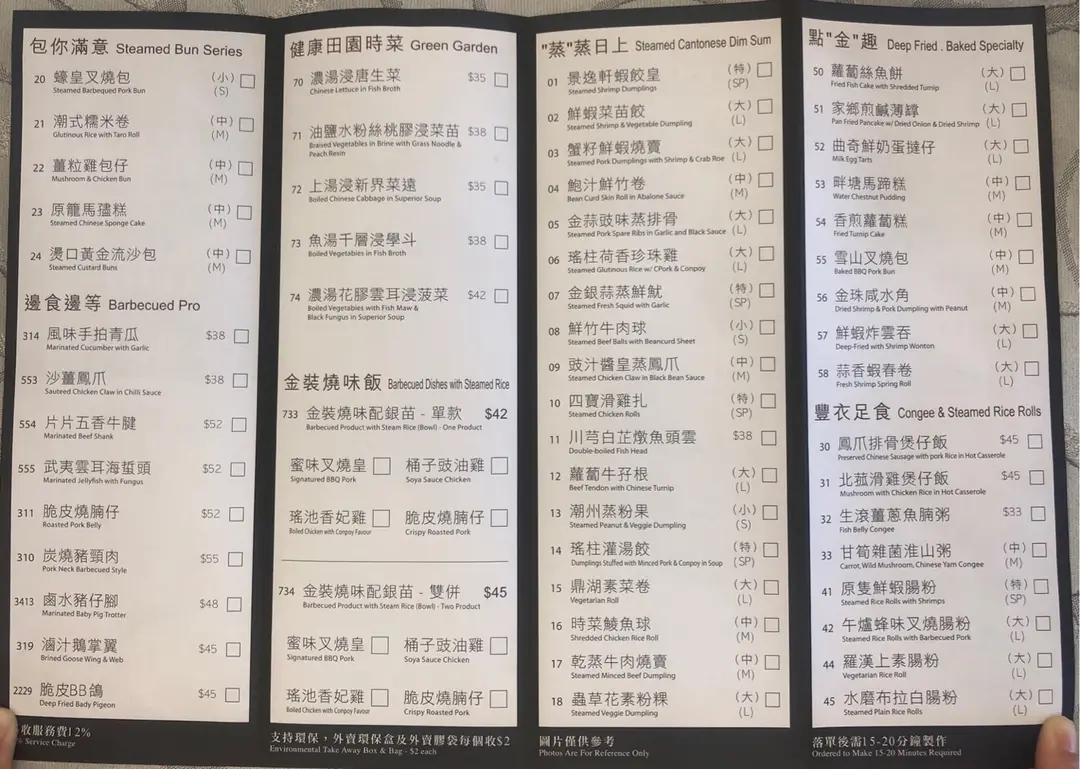 包你滿意 Steamed Bun Series
20 蠔皇叉燒包 (小)
Steamed Barbequed Pork Bun (S)
21 潮式糯米卷 (中)
Glutinous Rice with Taro Roll (M)
22 薑粒雞包仔 (中)
Mushroom & Chicken Bun (M)
23 原籠馬孻糕 (中)
Steamed Chinese Sponge Cake (M)
24 燙口黃金流沙包 (中)
Steamed Custard Buns (M)
邊食邊等 Barbecued Pro
314 風味手拍青瓜 $38
Marinated Cucumber with Garlic
553 沙薑鳳爪 $38
Sauteed Chicken Claw in Chilli Sauce
554 片片五香牛腱 $52
Marinated Beef Shank
555 武夷雲耳海蜇頭 $52
Marinated Jellyfish with Fungus
311 脆皮燒腩仔 $52
Roasted Pork Belly
310 炭燒豬頸肉 $55
Pork Neck Barbecued Style
3413 鹵水豬仔腳 $48
Marinated Baby Pig Trotter
319 滷汁鵝掌翼 $45
Brined Goose Wing & Web
2229 脆皮BB鴿 $45
Deep Fried Bady Pigeon
收服務費12%
Service Charge
健康田園時菜 Green Garden
70 濃湯浸唐生菜 $35
Chinese Lettuce in Fish Broth
71 油鹽水粉絲桃膠浸菜苗 $38
Braised Vegetables in Brine with Grass Noodle &
Peach Resin
72 上湯浸新界菜遠 $35
Boiled Chinese Cabbage in Superior Soup
73 魚湯千層浸學斗 $38
Boiled Vegetables in Fish Broth
74 濃湯花膠雲耳浸菠菜 $42
Boiled Vegetables with Fish Maw &
Black Fungus in Superior Soup
金裝燒味飯 Barbecued Dishes with Steamed Rice
733 金裝燒味配銀苗 - 單款 $42
Barbecued Product with Steam Rice (Bowl) - One Product
蜜味叉燒皇 桶子豉油雞
Signatured BBQ Pork Soya Sauce Chicken
瑤池香妃雞 脆皮燒腩仔
Boiled Chicken with Conpoy Favour Crispy Roasted Pork
734 金裝燒味配銀苗 - 雙併 $45
Barbecued Product with Steam Rice (Bowl) - Two Product
蜜味叉燒皇 桶子豉油雞
Signatured BBQ Pork Soya Sauce Chicken
瑤池香妃雞 脆皮燒腩仔
Boiled Chicken with Conpoy Favour Crispy Roasted Pork
支持環保，外賣環保盒及外賣膠袋每個收$2
Environmental Take Away Box & Bag - $2 each
"蒸"蒸日上 Steamed Cantonese Dim Sum
01 景逸軒蝦餃皇 (特)
Steamed Shrimp Dumplings (SP)
02 鮮蝦菜苗餃 (大)
Steamed Shrimp & Vegetable Dumpling (L)
03 蟹籽鮮蝦燒賣 (大)
Steamed Pork Dumplings with Shrimp & Crab Roe (L)
04 鮑汁鮮竹卷 (中)
Bean Curd Skin Roll in Abalone Sauce (M)
05 金蒜豉味蒸排骨 (大)
Steamed Pork Spare Ribs in Garlic and Black Sauce (L)
06 瑤柱荷香珍珠雞 (大)
Steamed Glutinous Rice w/ CPork & Conpoy (L)
07 金銀蒜蒸鮮魷 (特)
Steamed Fresh Squid with Garlic (SP)
08 鮮竹牛肉球 (小)
Steamed Beef Balls with Beancurd Sheet (S)
09 豉汁醬皇蒸鳳爪 (中)
Steamed Chicken Claw in Black Bean Sauce (M)
10 四寶滑雞扎 (特)
Steamed Chicken Rolls (SP)
11 川芎白芷燉魚頭雲 $38
Double-boiled Fish Head
12 蘿蔔牛孖根 (大)
Beef Tendon with Chinese Turnip (L)
13 潮州蒸粉果 (小)
Steamed Peanut & Veggie Dumpling (S)
14 瑤柱灌湯餃 (特)
Dumplings Stuffed with Minced Pork & Conpoy in Soup (SP)
15 鼎湖素菜卷 (大)
Vegetarian Roll (L)
16 時菜鯪魚球 (中)
Shredded Chicken Rice Roll (M)
17 乾蒸牛肉燒賣 (中)
Steamed Minced Beef Dumpling (M)
18 蟲草花素粉粿 (大)
Steamed Veggie Dumpling (L)
圖片僅供參考
Photos Are For Reference Only
點"金"趣 Deep Fried . Baked Specialty
50 蘿蔔絲魚餅 (大)
Fried Fish Cake with Shredded Turnip (L)
51 家鄉煎鹹薄罉 (大)
Pan Fried Pancake w/ Dried Onion & Dried Shrimp (L)
52 曲奇鮮奶蛋撻仔 (大)
Milk Egg Tarts (L)
53 畔塘馬蹄糕 (中)
Water Chestnut Pudding (M)
54 香煎蘿蔔糕 (中)
Fried Turnip Cake (M)
55 雪山叉燒包 (中)
Baked BBQ Pork Bun (M)
56 金珠咸水角 (中)
Dried Shrimp & Pork Dumpling with Peanut (M)
57 鮮蝦炸雲吞 (大)
Deep-Fried with Shrimp Wonton (L)
58 蒜香蝦春卷 (大)
Fresh Shrimp Spring Roll (L)
豐衣足食 Congee & Steamed Rice Rolls
30 鳳爪排骨煲仔飯 $45
Preserved Chinese Sausage with pork Rice in Hot Casserole
31 北菰滑雞煲仔飯 $45
Mushroom with Chicken Rice in Hot Casserole
32 生滾薑蔥魚腩粥 $33
Fish Belly Congee
33 甘筍雜菌淮山粥 (中)
Carrot, Wild Mushroom, Chinese Yam Congee (M)
41 原隻鮮蝦腸粉 (特)
Steamed Rice Rolls with Shrimps (SP)
42 午爐蜂味叉燒腸粉 (大)
Steamed Rice Rolls with Barbecued Pork (L)
44 羅漢上素腸粉 (大)
Vegetarian Rice Roll (L)
45 水磨布拉白腸粉 (大)
Steamed Plain Rice Rolls (L)
落單後需15-20分鐘製作
Ordered to Make 15-20 Minutes Required